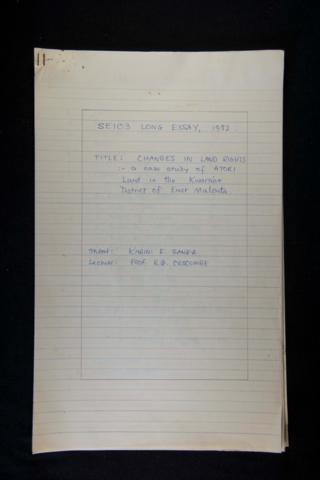 11-
SE103 LONG ESSAY, 1982.
TITLE: CHANGES IN LAND RIGHTS
:- a case study of ATORI
Land in the Kwara'ae
District of East Malaita
Lecturer: PROF. R.G. CROCOMBE